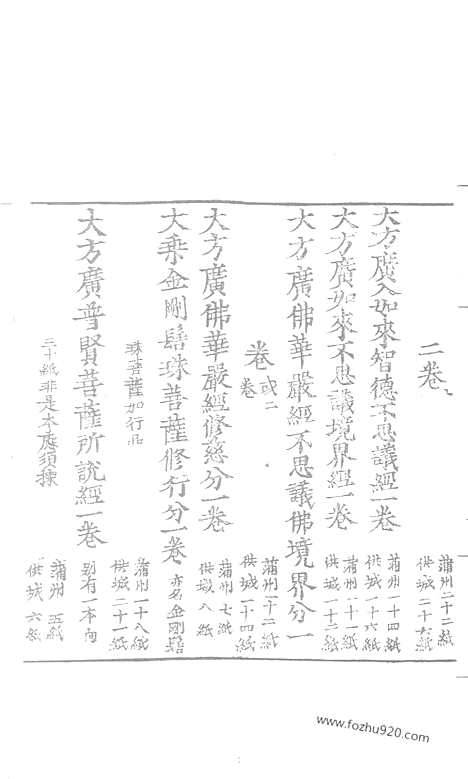 二卷
大方廣入如來智德不思議經一卷
蒲州二十二紙
供城二十六紙
大方廣如來不思議境界經一卷
蒲州一十四紙
供城一十六紙
大方廣佛華嚴經不思議佛境界分一
蒲州一十一紙
供城一十二紙
卷或二卷
蒲州一十二紙
供城一十四紙
大方廣佛華嚴經修慈分一卷
蒲州七紙
供城八紙
大乘金剛髻珠菩薩修行分一卷
亦名金剛髻
珠菩薩如行品
蒲州一十八紙
供城二十一紙
大方廣普賢菩薩所說經一卷
別有一本向
三十紙非是本應須揀
蒲州五紙
供城六紙
www.fozhu920.com